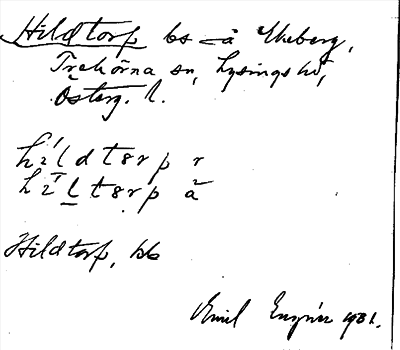 Hildtorp bs på Ekeberg,
Trehörna sn, Lysings hd,
Österg. l.
hildtɵrp r
hiltɵrp ä
Hildtorp, bb
Emil 1931.